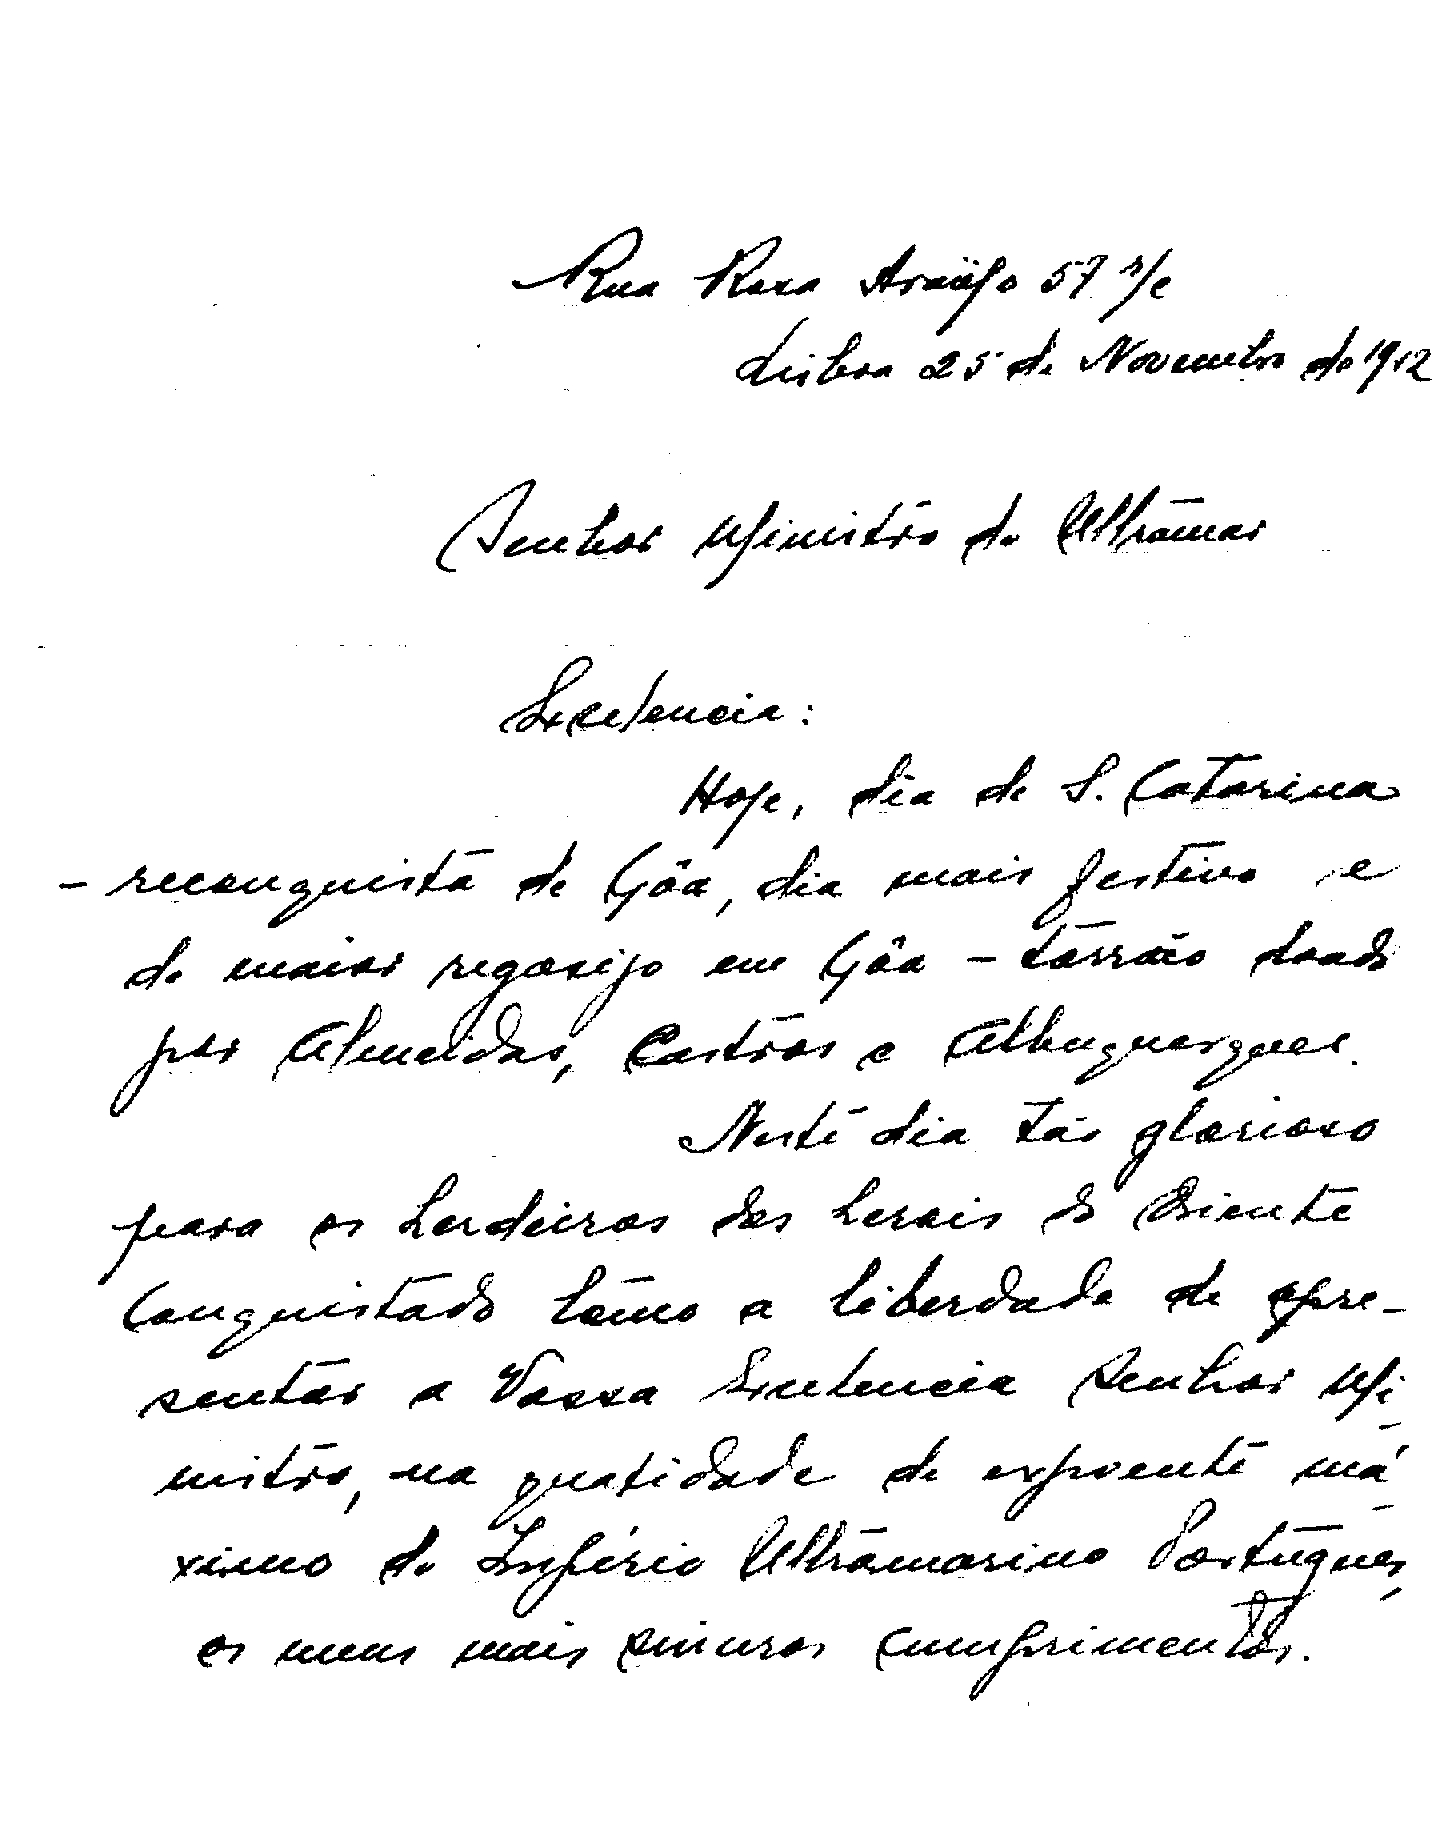 Rua Rosa Araújo 57 r/c
Lisboa 25 de Novembro de 1912
Senhor Ministro do Ultramar
Excelencia:
Hoje, dia de S. Catarina
- reconquista de Gôa, dia mais festivo e
de maior regosijo em Gôa - torrão doado
por Almeidas, Castros e Albuquerques.
Neste dia tão glorioso
para os herdeiros dos herois do Oriente
conquistado tômo a liberdade de apre-
sentar a Vossa Excelencia Senhor Mi
nistro, na qualidade de expoente má
ximo do Império Ultramarino Português,
os meus mais sinceros cumprimentos.